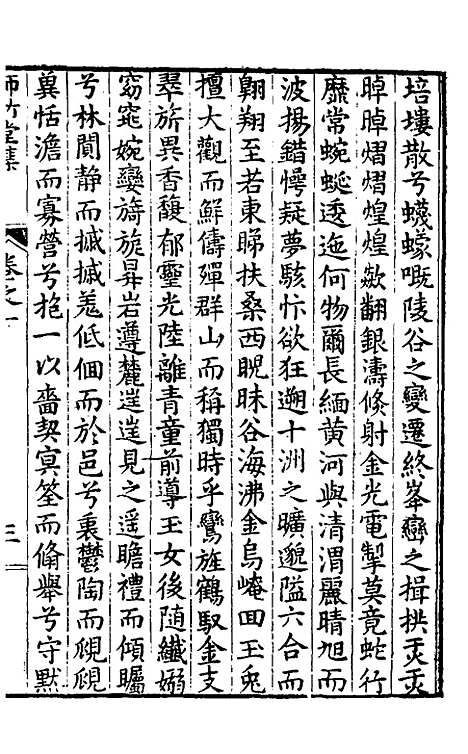 培塿散兮蠛蠓嘅陵谷之變遷終峯巒之揖拱炙炙
晫晫熠熠煌煌歘翻銀濤倏射金光電掣莫竟蛇行
靡常蜿蜒逶迤何物爾長緬黃河與清渭麗晴旭而
波揚錯愕疑夢駭忭欲狂遡十洲之曠邈隘六合而
翺翔至若東睇扶桑西睨昧谷海沸金烏崦回玉兔
擅大觀而鮮儔殫群山而稱獨時乎鸞旌鶴馭金支
翠旂異香馥郁靈光陸離青童前導玉女後隨纖嫋
窈窕婉孌旖旎昇岩遵麓逶逶見之遥瞻禮而傾矚
兮林閴静而摵摵羗低佪而於邑兮裏鬱陶而覙覙
兾恬澹而寡營兮抱一以嗇契㝠筌而脩舉兮守默
師竹堂集
卷之一
三